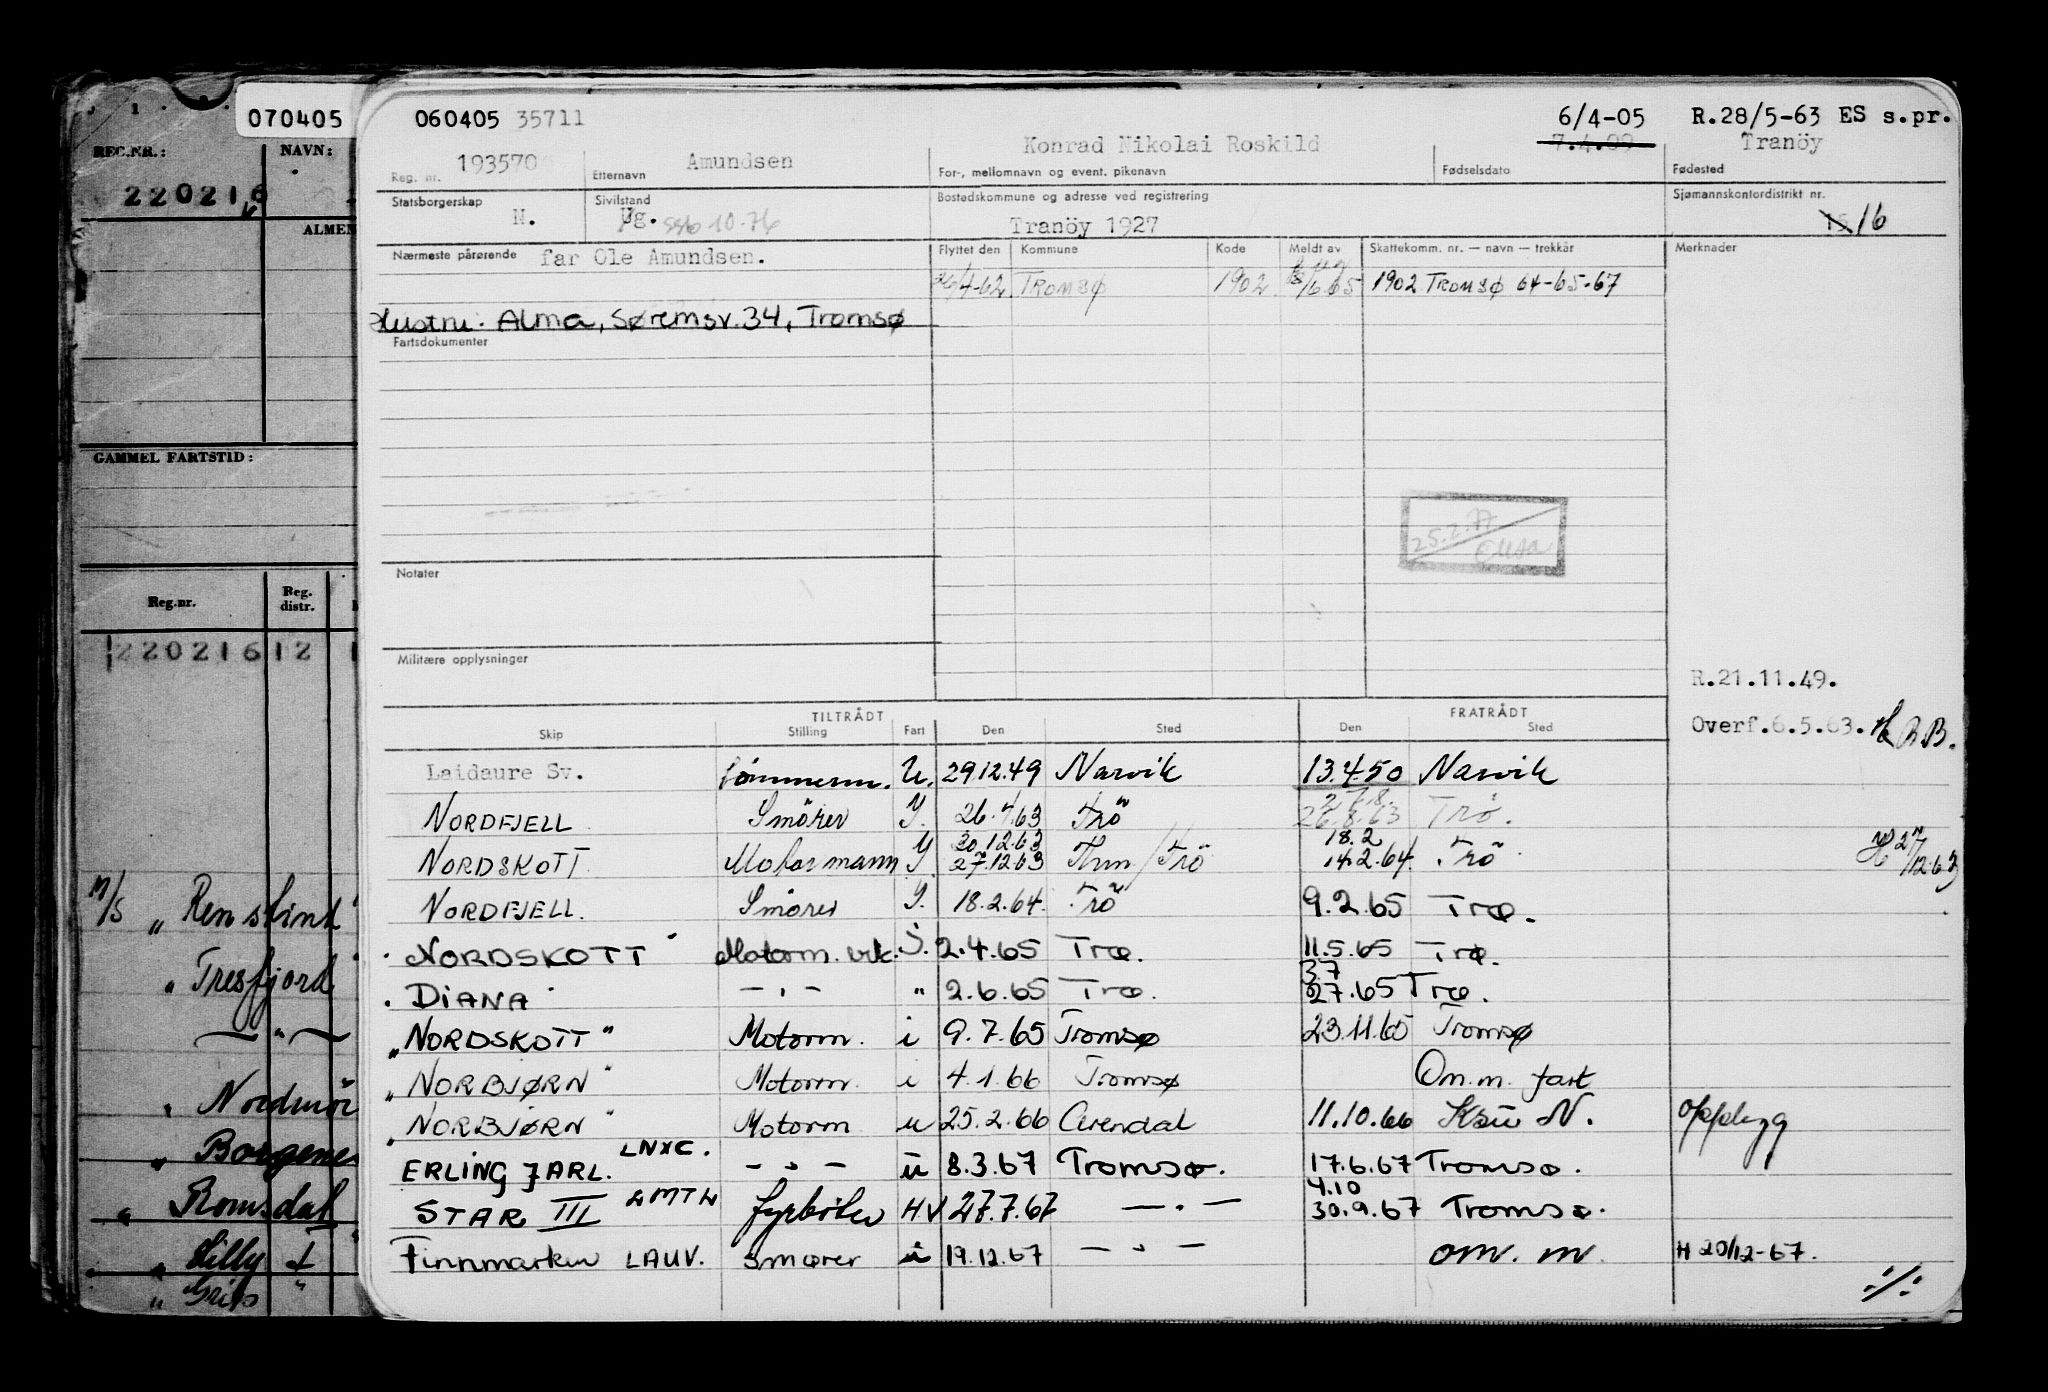 070405
REG.NR.:
NAVN:
220216
ALMEN
GAMMEL FARTSTID:
Reg.nr.
Reg. distr.
220216 12 1
M/S " Renstind"
" Tresfjord"
— " —
" Nordmör
" Borgenes
" Romsdal
" Lilly
" Gris "
060405 35711
6/4-05
R.28/5-63 ES s.pr.
193570
Amundsen
Konrad Nikolai Roskild
7.4.09
Tranöy
Reg. nr.
Etternavn
For-, mellomnavn og event. pikenavn
Fødselsdato
Fødested
Statsborgerskap
Sivilstand
Bostedskommune og adresse ved registrering
Sjømannskontordistrikt nr.
N.
Ug. ssb 10.76
Tranöy 1927
15 16
Nærmeste pårørende
far Ole Amundsen.
Flyttet den
Kommune
Kode
Meldt av
Skattekomm. nr. — navn — trekkår
Merknader
26/4-62 TROMSØ 1902 1902 TROMSØ 64-65-67
Hustru: Alma, Søremsv. 34, Tromsø
Fartsdokumenter
25.2.77
Elisa
Notater
Militære opplysninger
R.21.11.49.
Overf.6.5.63. H B.B.
TILTRÅDT
FRATRÅDT
Skip
Stilling
Fart
Den
Sted
Den
Sted
Laidaure Sv. tömmerm. U. 29.12.49 Narvik 13.4.50 Narvik
NORDFJELL Smörer I. 26.4.63 Trö 26.8.63 Trö.
30.12.63 18.2
NORDSKOTT Motormann I. 27.12.63 Thm/Trö 14.2.64. Trö H 27/12.63
NORDFJELL. Smörer I. 18.2.64. Trö 9.2.65 Trø.
" NORDSKOTT " Motorm. vik. I. 2.4.65 Trø. 11.5.65 Trø.
3.7
" DIANA " — " — " 2.6.65 Trø. 2.7.65 Trø.
" NORDSKOTT " Motorm. i 9.7.65 Tromsø 23.11.65 Tromsø
" NORBJØRN " Motorm. i 4.1.66 Tromsø Om.m. fart
" NORBJØRN " Motorm u 25.2.66 Arendal 11.10.66 Ksü N. opplegg
ERLING JARL. LNXC. — " — i 8.3.67 Tromsø. 17.6.67 Tromsø.
4.10
STAR III LMTW fyrbøter HV 27.7.67 — " — 30.9.67 Tromsø.
Finnmarken LAUV. smører i 19.12.67 — " — om. m. H 20/12-67.
./.